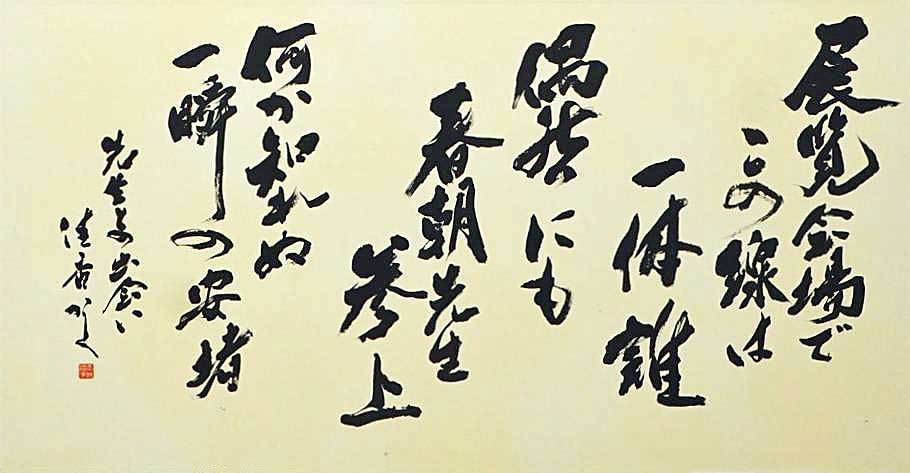 展覧会場で
この線は
一体誰
偶然にも
春朝先生
参上
何か知れぬ
一瞬の安堵
先生と出会い
佳香かく